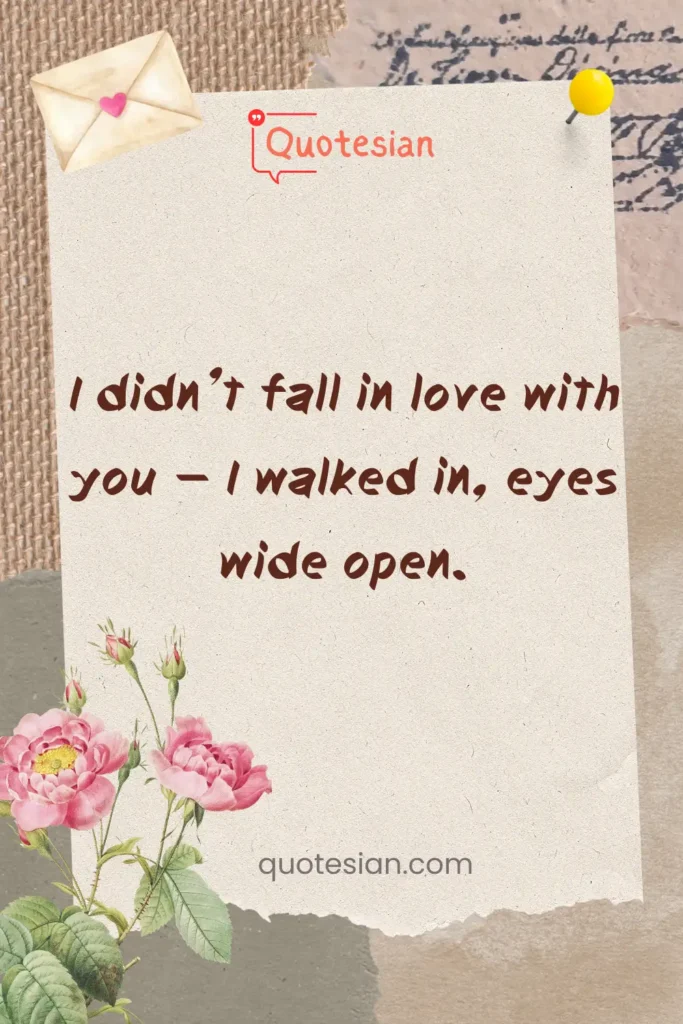 Quotesian
I didn't fall in love with
you – I walked in, eyes
wide open.
quotesian.com